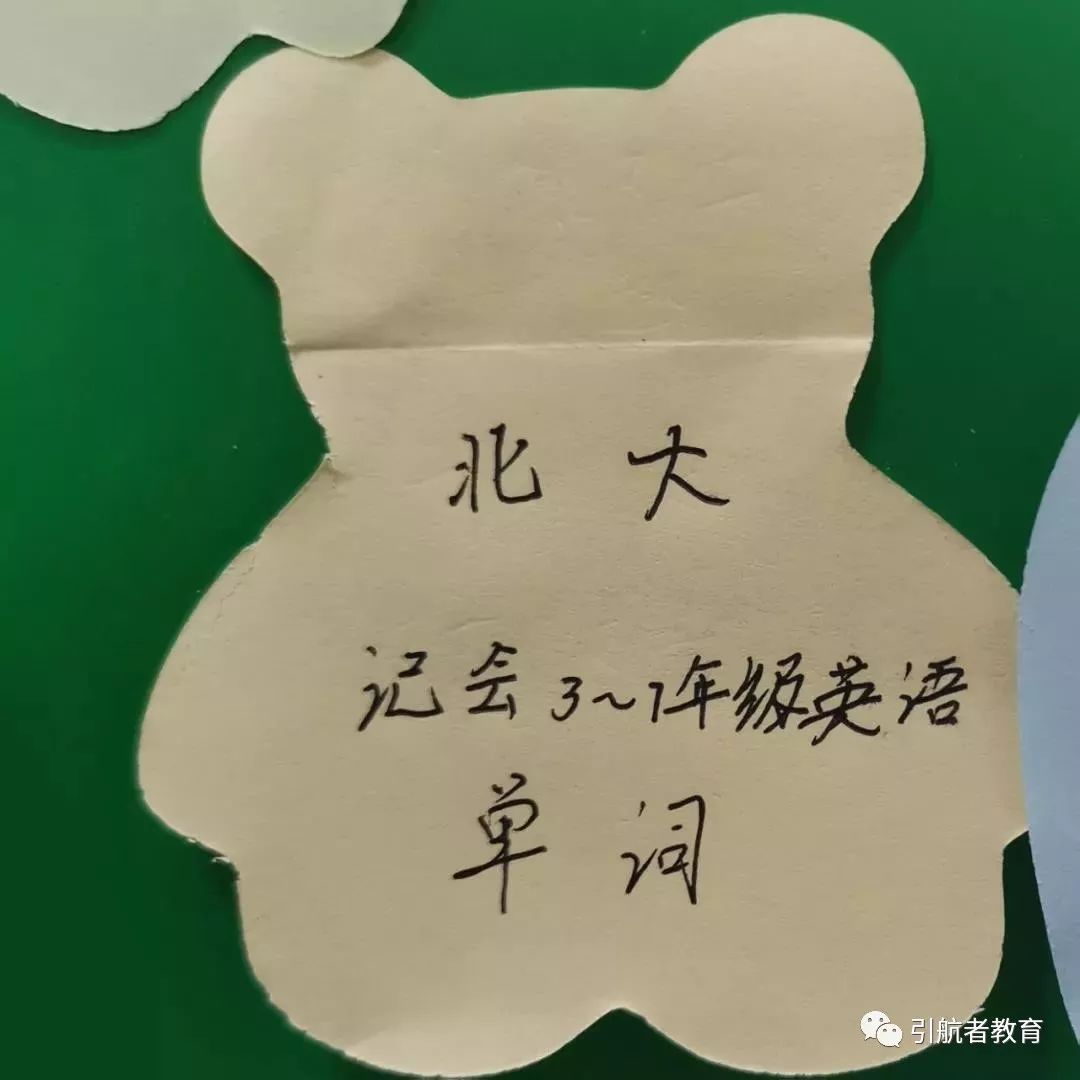 北大
记会3~7年级英语
单词
引航者教育